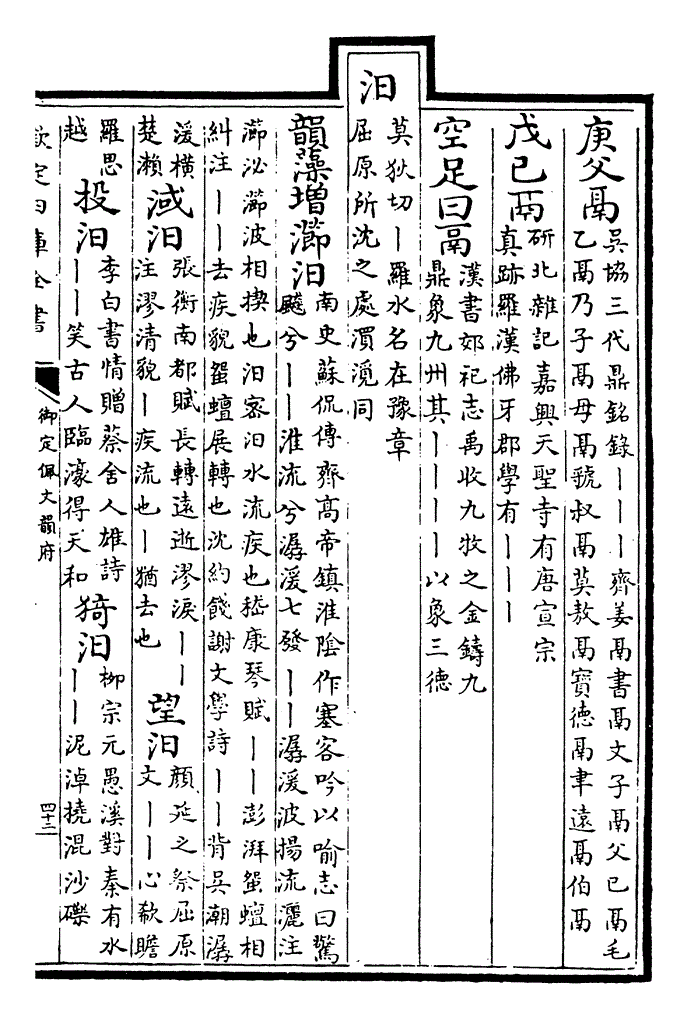 庚父鬲
吳協三代鼎銘錄丨丨丨齊姜鬲書鬲文子鬲父己鬲毛
乙鬲乃子鬲母鬲虢叔鬲莫敖鬲寶德鬲聿遠鬲伯鬲
戊己鬲
研北雜記嘉興天聖寺有唐宣宗
真跡羅漢佛牙郡學有丨丨丨
空足曰鬲
漢書郊祀志禹收九牧之金鑄九
鼎象九州其丨丨丨丨以象三德
汨
莫狄切丨羅水名在豫章
屈原所沈之處同
韻藻增瀄汨
南史蘇侃傳齊高帝鎮淮陰作塞客吟以喻志曰驚
飈兮丨丨淮流兮潺湲七發丨丨潺湲波揚流灑注
瀄泌瀄波相揳也汨密汨水流疾也嵇康琴賦丨丨澎湃蜿蟺相
糾注丨丨去疾貌蜿蟺展轉也沈約餞謝文學詩丨丨背吳潮潺
湲橫
楚瀨
淢汨
張衡南都賦長轉遠逝漻淚丨丨
注漻清貌丨疾流也丨猶去也
望汨
顏延之祭屈原
文丨丨心欷瞻
羅思
越
投汨
李白書情贈蔡舍人雄詩
丨丨笑古人臨濠得天和
猗汨
柳宗元愚溪對秦有水
丨丨泥淖撓混沙礫
欽定四庫全書
御定佩文韻府
四十二